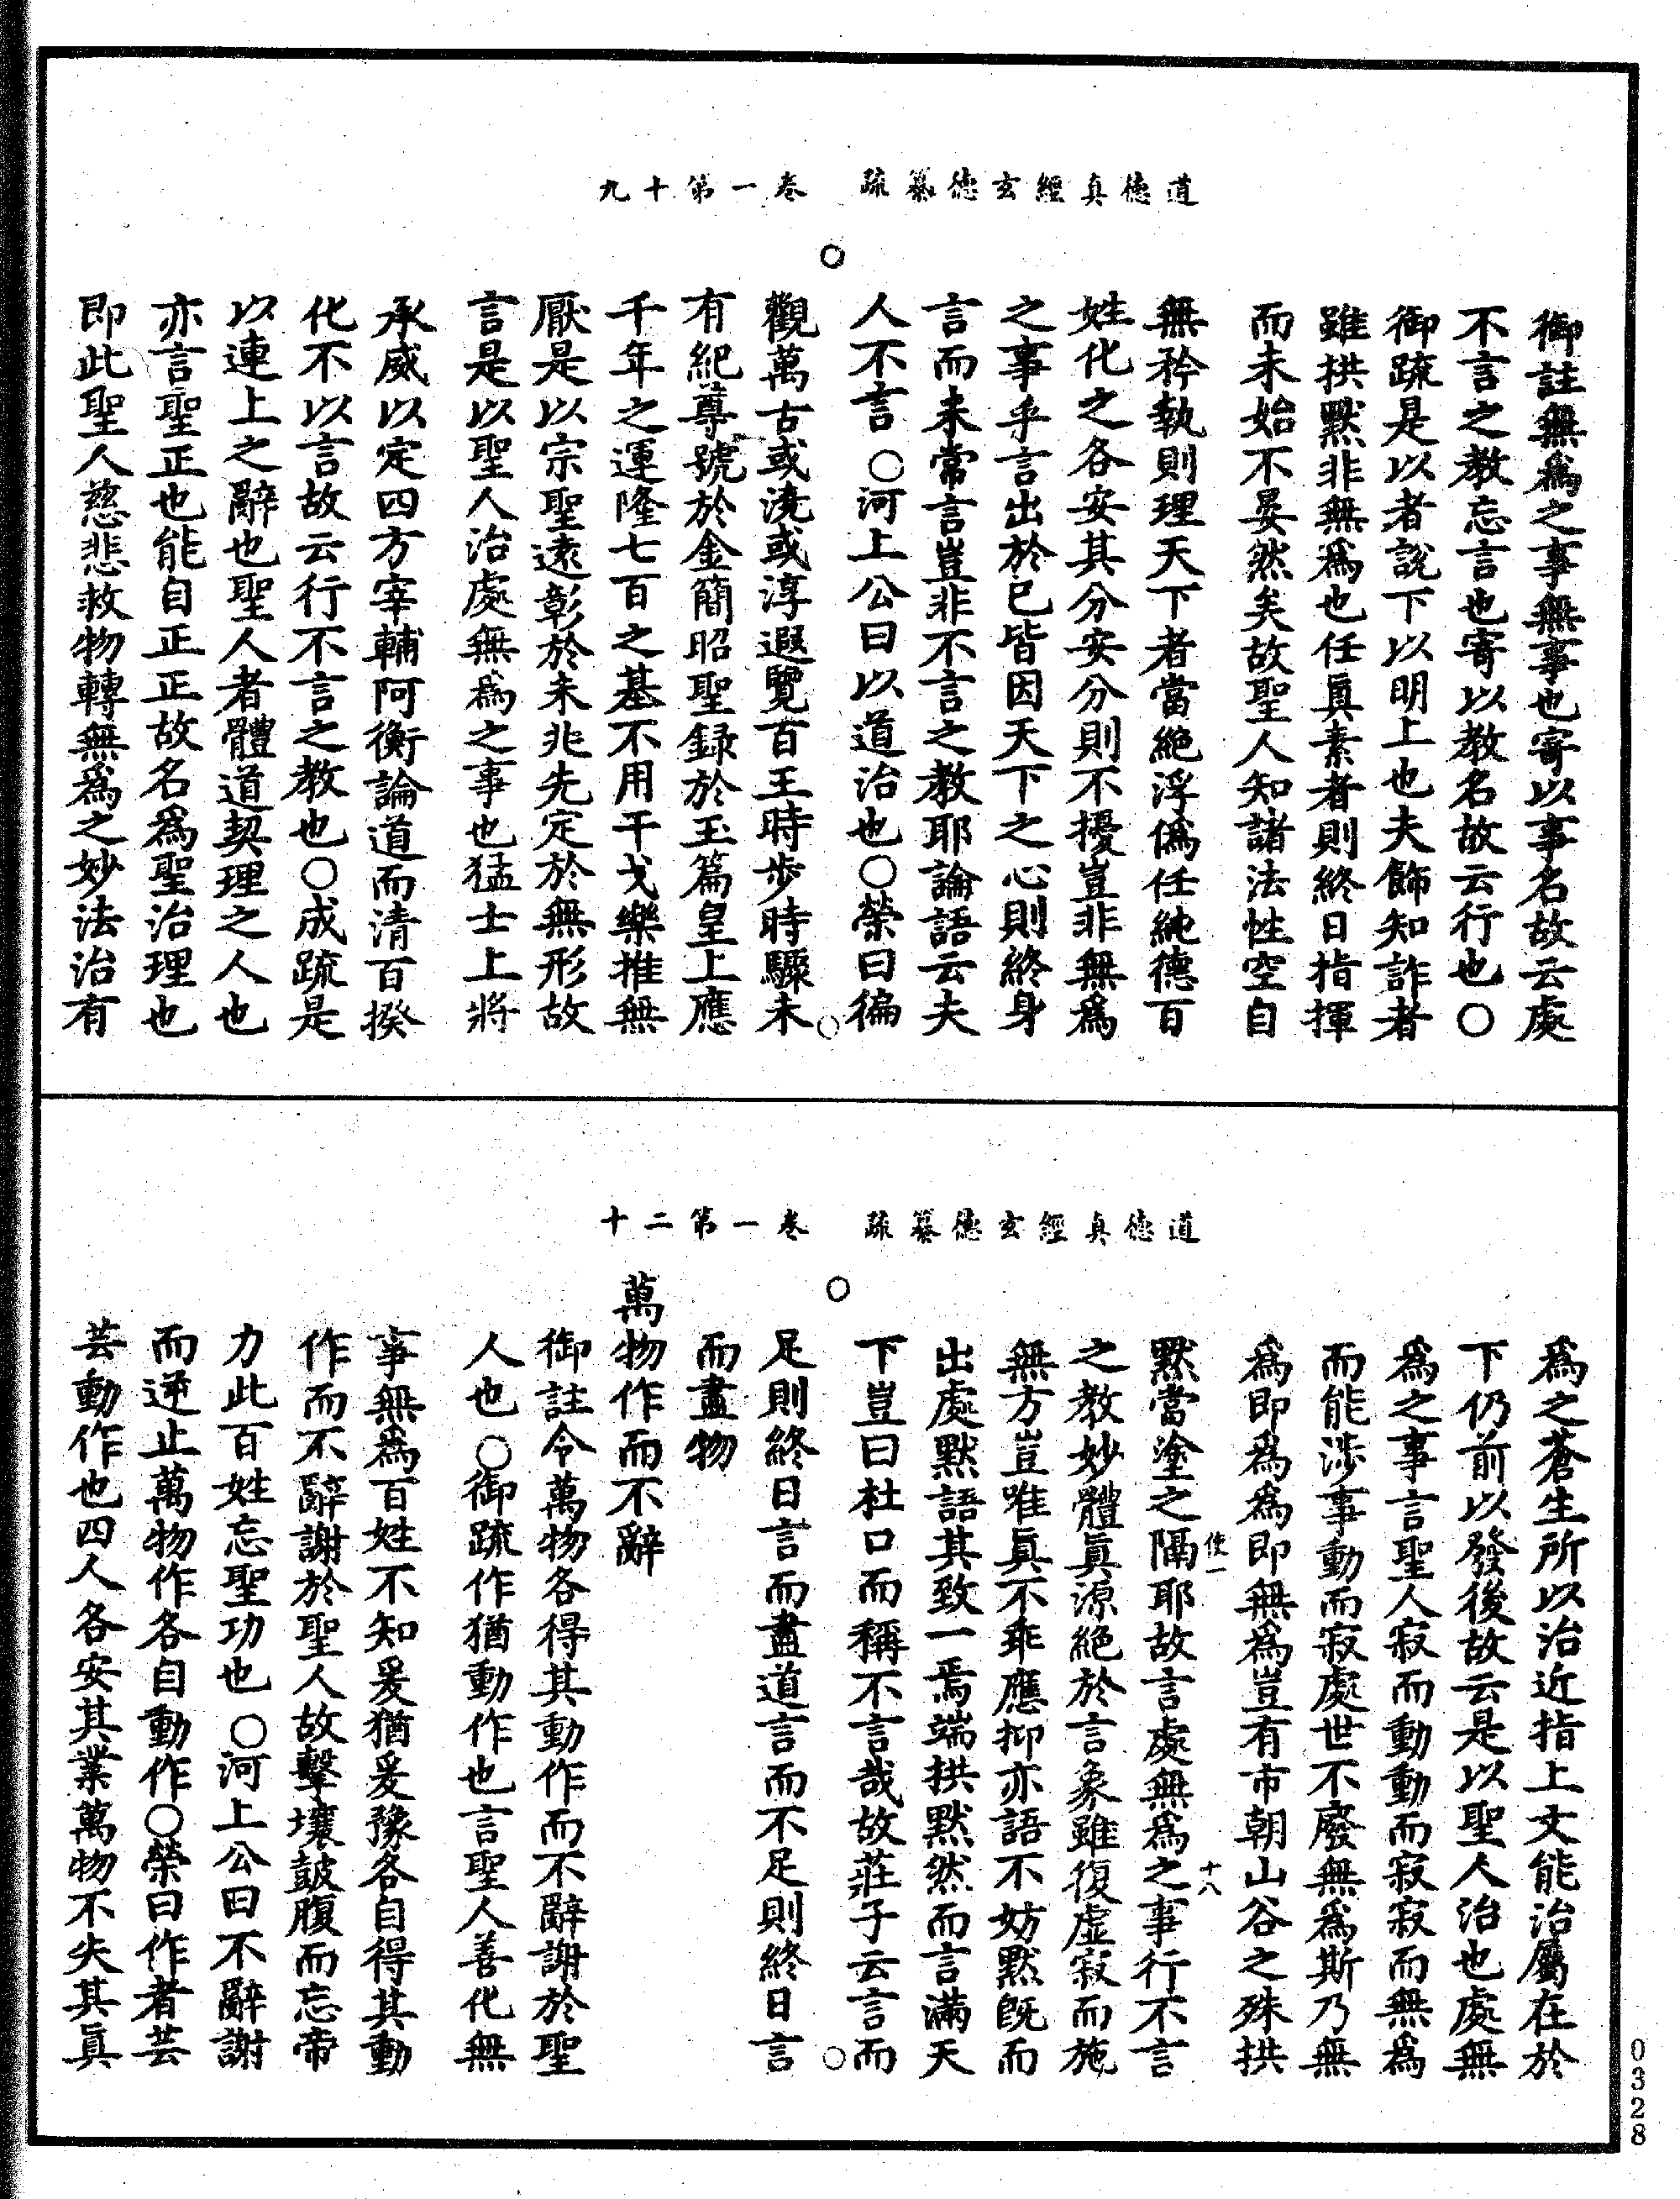 道德真經玄德纂疏　卷一第十九
御註無爲之事無事也寄以事名故云處
不言之教忘言也寄以教名故云行也○
御疏是以者說下以明上也夫飾知詐者
雖拱默非無爲也任眞素者則終日指揮
而未始不晏然矣故聖人知諸法性空自
無矜執則理天下者當絶浮僞任純德百
姓化之各安其分安分則不擾豈非無爲
之事乎言出於已皆因天下之心則終身
言而未常言豈非不言之教耶論語云夫
人不言○河上公曰以道治也○榮曰徧
觀萬古或澆或淳遐覽百王時步時驟未
有紀尊號於金簡昭聖録於玉篇皇上應
千年之運隆七百之基不用干戈樂推無
厭是以宗聖遠彰於未兆先定於無形故
言是以聖人治處無爲之事也猛士上將
承威以定四方宰輔阿衡論道而清百揆
化不以言故云行不言之教也○成疏是
以連上之辭也聖人者體道契理之人也
亦言聖正也能自正正故名爲聖治理也
即此聖人慈悲救物轉無爲之妙法治有
道德真經玄德纂疏　卷一第二十
爲之蒼生所以治近指上文能治屬在於
下仍前以發後故云是以聖人治也處無
爲之事言聖人寂而動動而寂寂而無爲
而能涉事動而寂處世不廢無爲斯乃無
爲即爲爲即無爲豈有市朝山谷之殊拱
使一　十八
默當塗之隔耶故言處無爲之事行不言
之教妙體眞源絶於言象雖復虚寂而施
無方豈唯眞不乖應抑亦語不妨默旣而
出處默語其致一焉端拱默然而言滿天
下豈曰杜口而稱不言哉故莊子云言而
足則終日言而盡道言而不足則終日言
而盡物
萬物作而不辭
御註令萬物各得其動作而不辭謝於聖
人也○御疏作猶動作也言聖人善化無
事無爲百姓不知爰猶爰豫各自得其動
作而不辭謝於聖人故擊壤鼓腹而忘帝
力此百姓忘聖功也○河上公曰不辭謝
而逆止萬物作各自動作○榮曰作者芸
芸動作也四人各安其業萬物不失其眞
0328